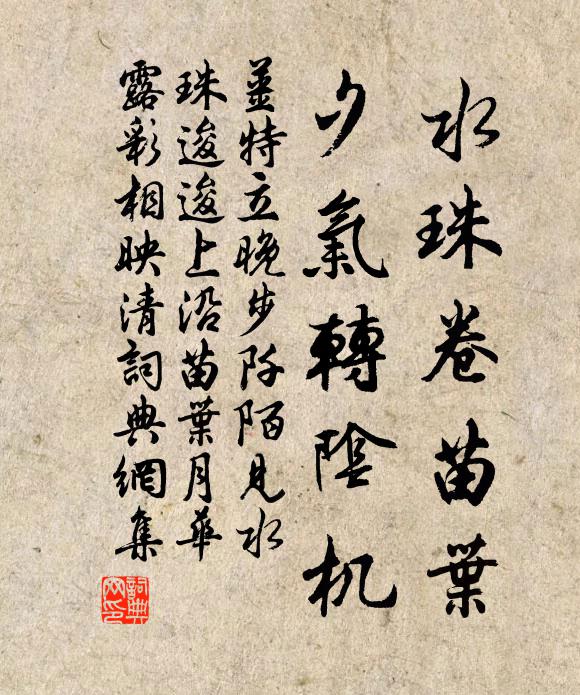 水珠卷苗葉
夕氣轉陰机
薑特立晚步阡陌見水
珠逡逡上沿苗葉月華
露彩相映清詞典網集
詞典